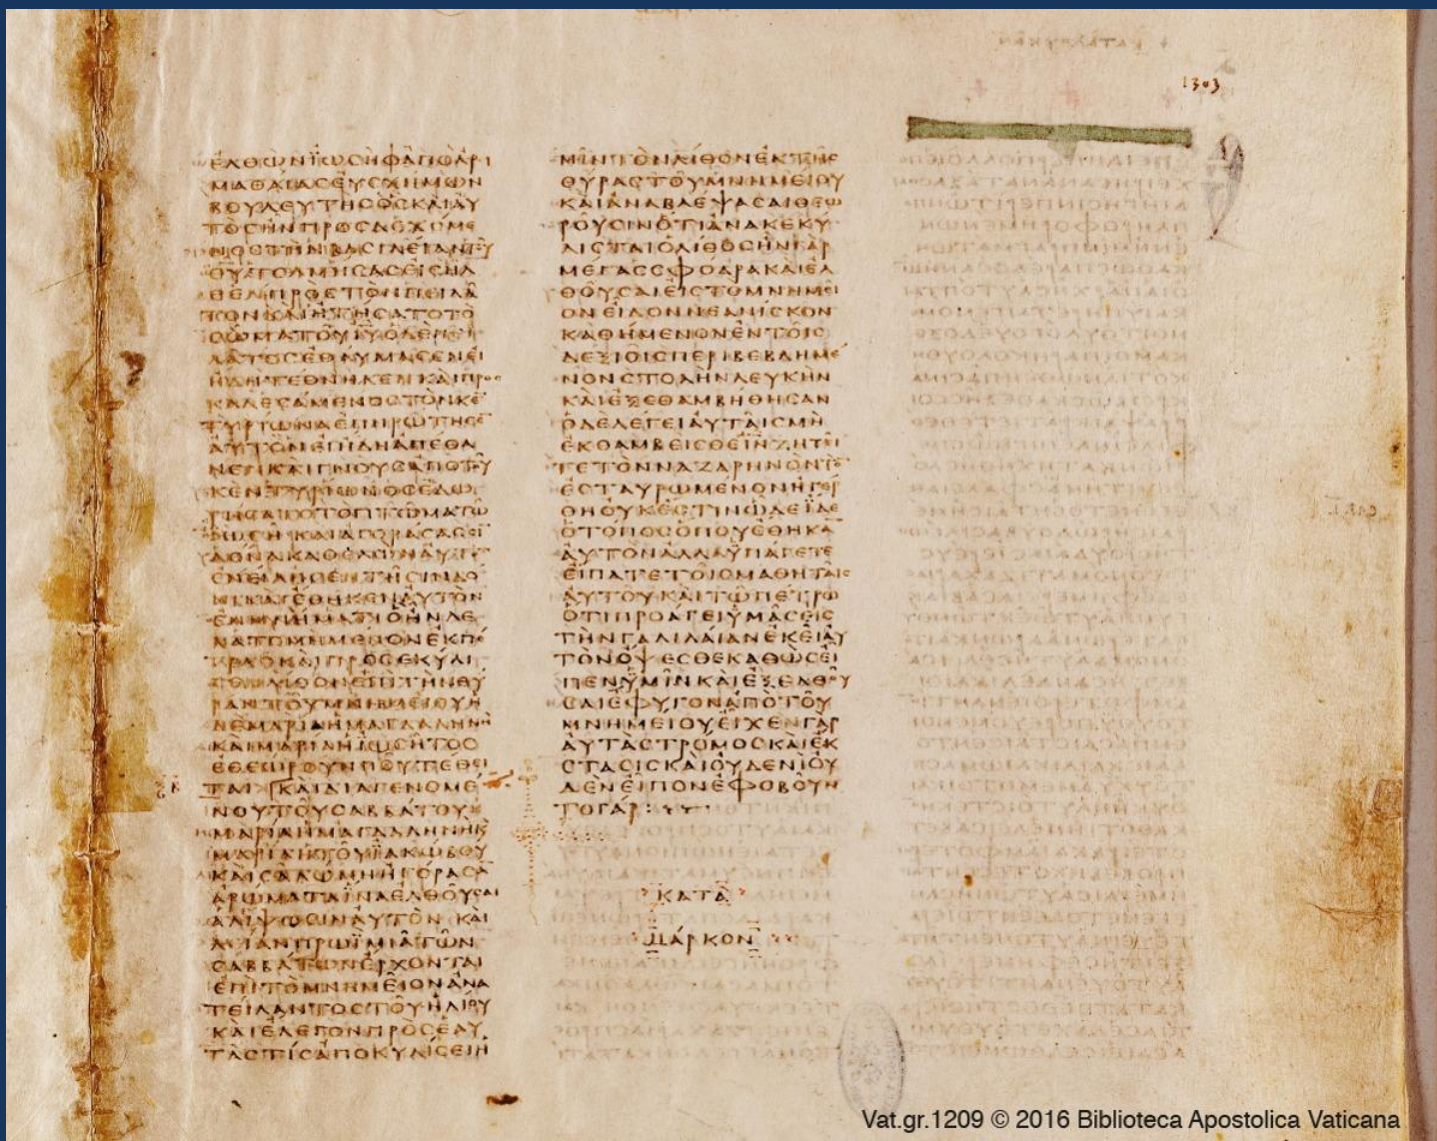 1303
ΕΛΘΩΝΙΩΣΗΦΑΠΟΑΡΙ
ΜΑΘΑΙΑΣΕΥΣΧΗΜΩΝ
ΒΟΥΛΕΥΤΗΣΟΣΚΑΙΑΥ
ΤΟΣΗΝΠΡΟΣΔΕΧΟΜΕ
ΝΟΣΤΗΝΒΑΣΙΛΕΙΑΝΤΟΥ
ΘΥΤΟΛΜΗΣΑΣΕΙΣΗΛ
ΘΕΝΠΡΟΣΤΟΝΠΕΙΛΑ
ΤΟΝΚΑΙΗΤΗΣΑΤΟΤΟ
ΣΩΜΑΤΟΥΙΥΟΔΕΠΕΙ
ΛΑΤΟΣΕΘΑΥΜΑΣΕΝΕΙ
ΗΔΗΤΕΘΝΗΚΕΝΚΑΙΠΡΟΣ
ΚΑΛΕΣΑΜΕΝΟΣΤΟΝΚΕ
ΤΥΡΙΩΝΑΕΠΗΡΩΤΗΣΕ
ΑΥΤΟΝΕΙΗΔΗΑΠΕΘΑ
ΝΕΝΚΑΙΓΝΟΥΣΑΠΟΤΟΥ
ΚΕΝΤΥΡΙΩΝΟΣΕΔΩ
ΡΗΣΑΤΟΤΟΠΤΩΜΑΤΩ
ΙΩΣΗΚΑΙΑΓΟΡΑΣΑΣΣΙ
ΔΟΝΑΚΑΘΕΛΩΝΑΥΤΟ
ΕΝΕΙΛΗΣΕΝΤΗΣΙΝΔΟ
ΝΙΚΑΙΕΘΗΚΕΝΑΥΤΟΝ
ΕΝΜΝΗΜΑΤΙΟΗΝΛΕ
ΛΑΤΟΜΗΜΕΝΟΝΕΚΠΕ
ΤΡΑΣΚΑΙΠΡΟΣΕΚΥΛΙ
ΣΕΝΛΙΘΟΝΕΠΙΤΗΝΘΥ
ΡΑΝΤΟΥΜΝΗΜΕΙΟΥΗ
ΔΕΜΑΡΙΑΗΜΑΓΔΑΛΗΝΗ
ΚΑΙΜΑΡΙΑΗΙΩΣΗΤΟΣ
ΕΘΕΩΡΟΥΝΠΟΥΤΕΘΕΙ
ΤΑΙΚΑΙΔΙΑΓΕΝΟΜΕ
ΝΟΥΤΟΥΣΑΒΒΑΤΟΥΗ
ΜΑΡΙΑΗΜΑΓΔΑΛΗΝΗΚ
ΜΑΡΙΑΗΤΟΥΙΑΚΩΒΟΥ
ΚΑΙΣΑΛΩΜΗΗΓΟΡΑΣΑ
ΑΡΩΜΑΤΑΙΝΑΕΛΘΟΥΣΑΙ
ΑΛΙΨΩΣΙΝΑΥΤΟΝΚΑΙ
ΛΕΙΑΝΠΡΩΙΜΙΑΤΩΝ
ΣΑΒΒΑΤΩΝΕΡΧΟΝΤΑΙ
ΕΠΙΤΟΜΝΗΜΕΙΟΝΑΝΑ
ΤΕΙΛΑΝΤΟΣΤΟΥΗΛΙΟΥ
ΚΑΙΕΛΕΓΟΝΠΡΟΣΕΑΥ
ΤΑΣΤΙΣΑΠΟΚΥΛΙΣΕΙΗ
ΜΙΝΤΟΝΛΙΘΟΝΕΚΤΗΣ
ΘΥΡΑΣΤΟΥΜΝΗΜΕΙΟΥ
ΚΑΙΑΝΑΒΛΕΨΑΣΑΙΘΕΩ
ΡΟΥΣΙΝΟΤΙΑΝΑΚΕΚΥ
ΛΙΣΤΑΙΟΛΙΘΟΣΗΝΓΑΡ
ΜΕΓΑΣΣΦΟΔΡΑΚΑΙΕΛ
ΘΟΥΣΑΙΕΙΣΤΟΜΝΗΜΕΙ
ΟΝΕΙΔΟΝΝΕΑΝΙΣΚΟΝ
ΚΑΘΗΜΕΝΟΝΕΝΤΟΙΣ
ΔΕΞΙΟΙΣΠΕΡΙΒΕΒΛΗΜΕ
ΝΟΝΣΤΟΛΗΝΛΕΥΚΗΝ
ΚΑΙΕΞΕΘΑΜΒΗΘΗΣΑΝ
ΟΔΕΛΕΓΕΙΑΥΤΑΙΣΜΗ
ΕΚΘΑΜΒΕΙΣΘΕΙΝΖΗΤΕΙ
ΤΕΤΟΝΝΑΖΑΡΗΝΟΝΤΟ
ΕΣΤΑΥΡΩΜΕΝΟΝΗΓΕΡ
ΘΗΟΥΚΕΣΤΙΝΩΔΕΙΔΕ
ΟΤΟΠΟΣΟΠΟΥΕΘΗΚΑ
ΑΥΤΟΝΑΛΛΑΥΠΑΓΕΤΕ
ΕΙΠΑΤΕΤΟΙΣΜΑΘΗΤΑΙΣ
ΑΥΤΟΥΚΑΙΤΩΠΕΤΡΩ
ΟΤΙΠΡΟΑΓΕΙΥΜΑΣΕΙΣ
ΤΗΝΓΑΛΙΛΑΙΑΝΕΚΕΙΑΥ
ΤΟΝΟΨΕΣΘΕΚΑΘΩΣΕΙ
ΠΕΝΥΜΙΝΚΑΙΕΞΕΛΘΟΥ
ΣΑΙΕΦΥΓΟΝΑΠΟΤΟΥ
ΜΝΗΜΕΙΟΥΕΙΧΕΝΓΑΡ
ΑΥΤΑΣΤΡΟΜΟΣΚΑΙΕΚ
ΣΤΑΣΙΣΚΑΙΟΥΔΕΝΙΟΥ
ΔΕΝΕΙΠΟΝΕΦΟΒΟΥΝ
ΤΟΓΑΡ
ΚΑΤΑ
ΜΑΡΚΟΝ
Vat.gr.1209 © 2016 Biblioteca Apostolica Vaticana